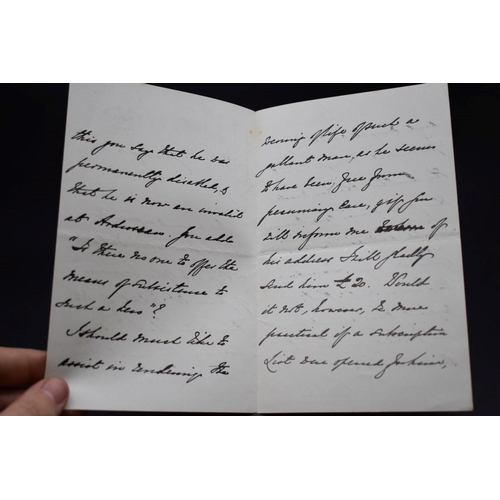 this you say that he was
permanently disabled, &
that he is now an invalid
at You add
"Is there no one to offer the
means of subsistence to
such a Hero"?
I should much like to
assist in rendering the
evening of life of such a
gallant man, as he seems
to have been, free from
pecuniary care, & if you
will inform me of
his address I will gladly
send him £20. Would
it not, however, be more
practical if a subscription
List were opened for him,